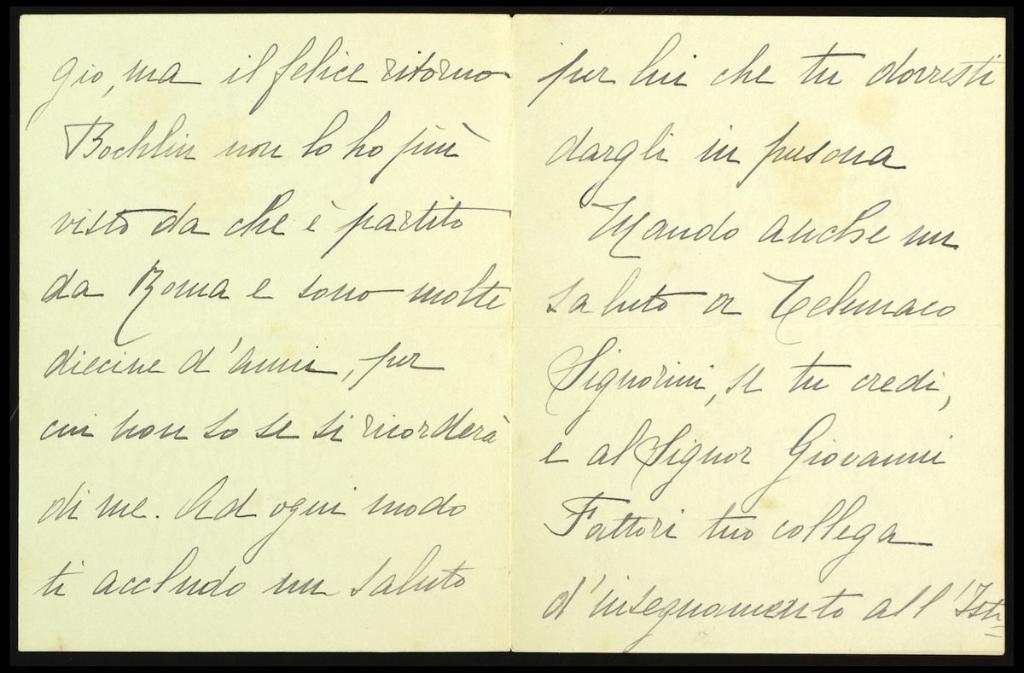 gio, ma il felice ritorno
Bochlin non lo ho più
visto da che è partito
da Roma e sono molte
diecine d'anni, per
cui non so se si ricorderà
di me. Ad ogni modo
ti accludo un saluto
per lui che tu dovresti
dargli in persona
Mando anche un
saluto a Telemaco
Signorini, se tu credi,
e al Signor Giovanni
Fattori tuo collega
d'insegnamento all'Isti=